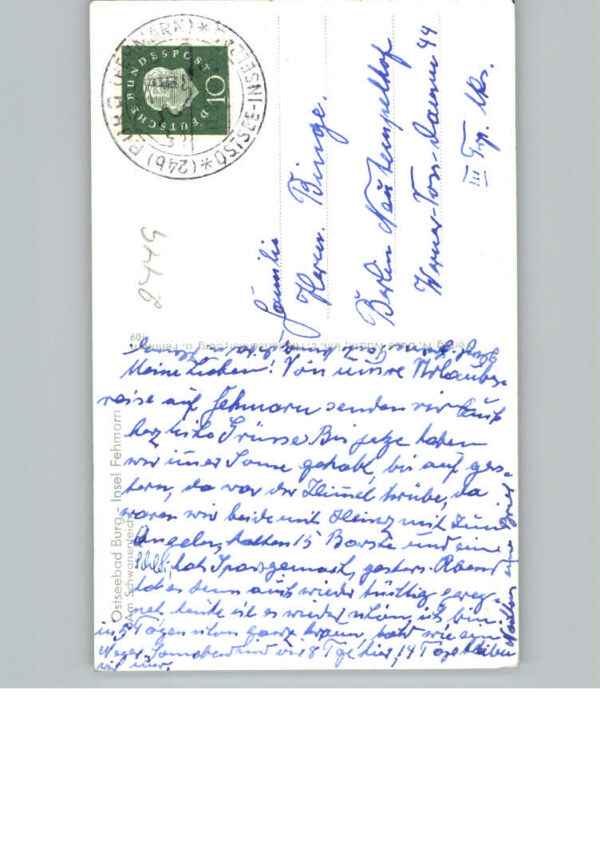 (24b) BURG (FEHMARN) * OSTSEE-INSEL
DEUTSCHE BUNDESPOST
10
2449
Familie
Herm. Binge.
Berlin Neutempelhof
Werner-Voss-Damm 44
III Trp. lks.
Ostseebad Burg, Insel Fehmarn
Am Schwanenteich
Meine Lieben! Von unsre Urlaubs-
reise auf Fehmarn senden wir Euch
herzliche Grüsse. Bis jetzt haben
wir immer Sonne gehabt, bis auf ges-
tern, da war der Himmel trübe, da
waren wir beide mit Heinz mit zum
Angeln, hatten 15 Barsche und eine
hat Spass gemacht, gestern Abend
hat es denn auch wieder tüchtig gereg-
net heute ist es wieder schön, ich bin
in 5 Tagen schon ganz braun, bald wie ein
Neger, Sonnabend sind wir 8 Tge hier, 14 Tage bleiben
wir nur.